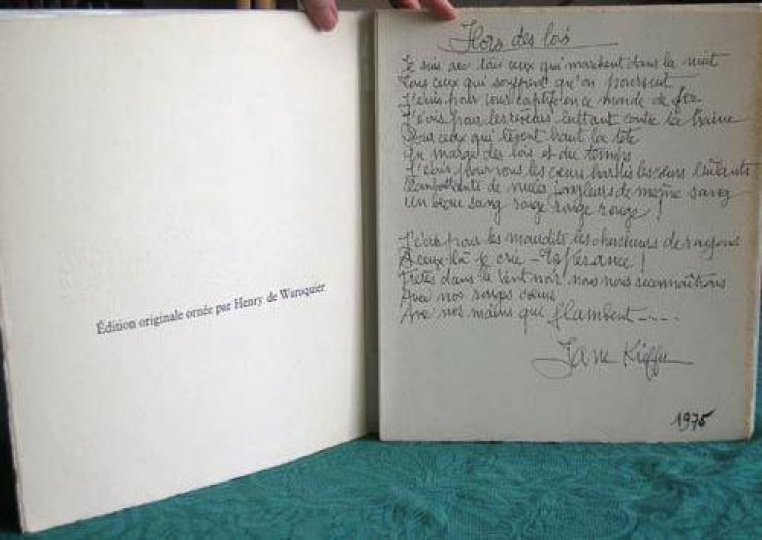 Édition originale ornée par Henry de Waroquier
Hors des lois
Je suis avec tous ceux qui marchent dans la nuit
Tous ceux qui souffrent qu'on poursuit
J'écris pour tous captifs en ce monde de fer
J'écris pour les révoltés luttant contre la haine
Pour ceux qui lèvent haut la tête
En marge des lois et du temps
J'écris pour vous les cœurs hardis les cœurs
de mille jongleurs de même sang
Un beau sang rouge rouge rouge !
J'écris pour les maudits les chercheurs de rayons
A ceux-là je crie - Espérance !
Frères dans le vent noir nous nous reconnaîtrons
Avec nos rouges cœurs
Avec nos mains qui flambent ----
Jane Kieffer
1975